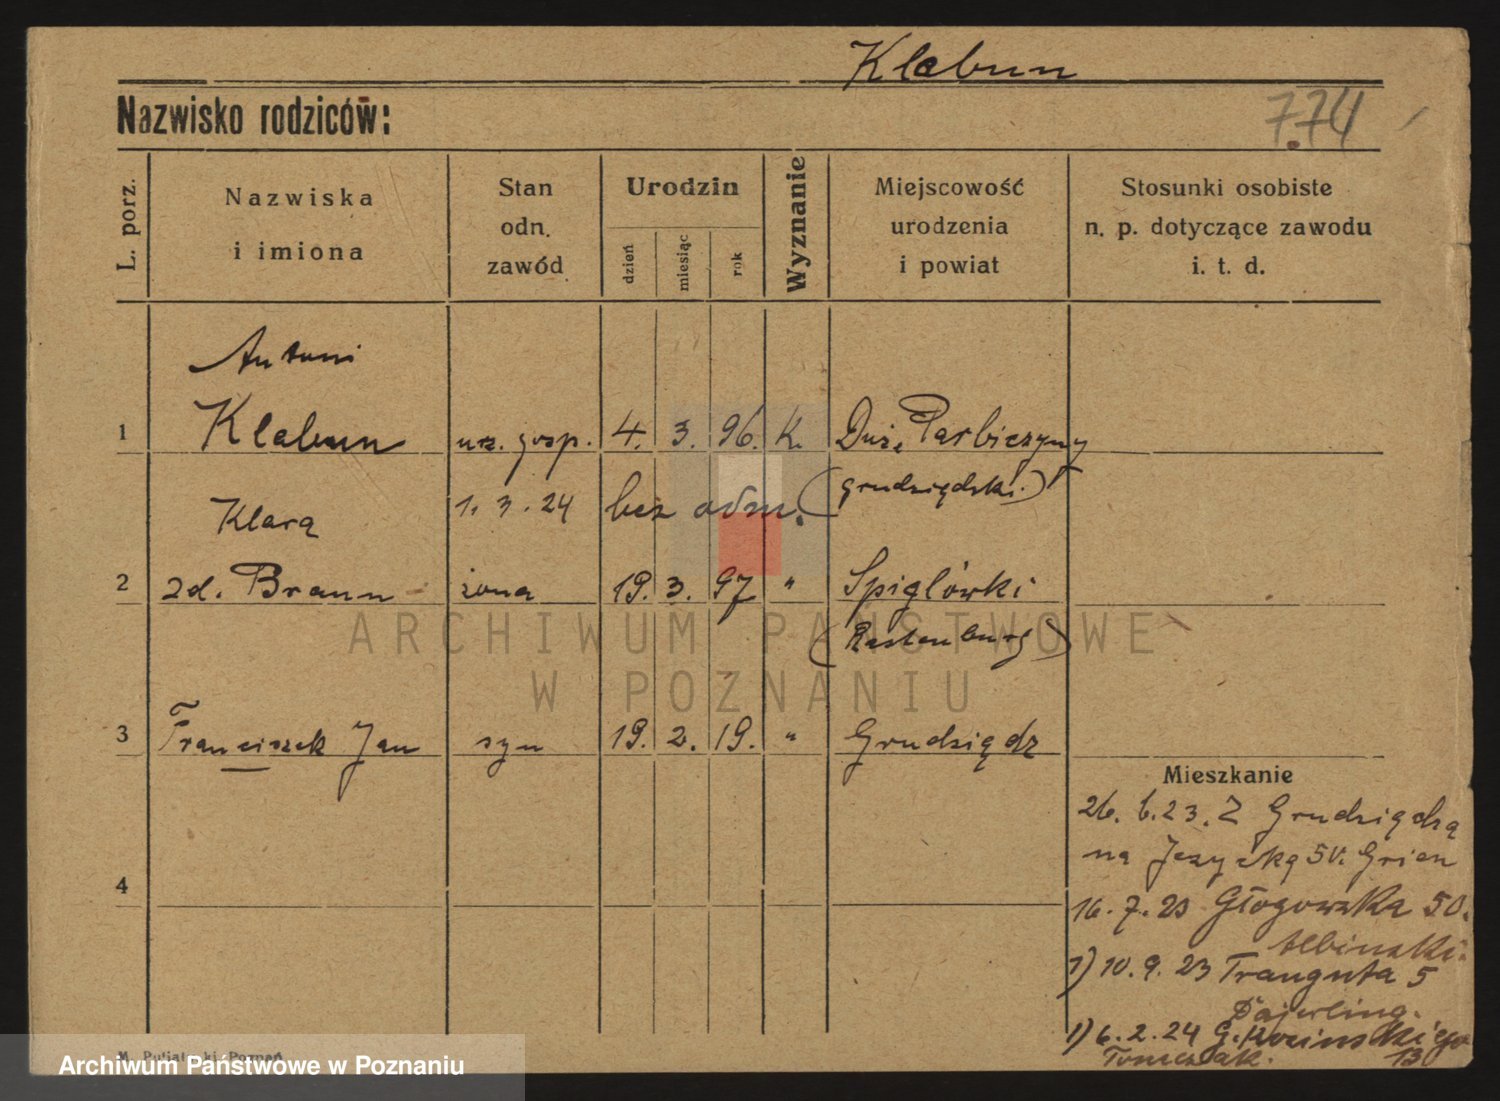 Klabun
Nazwisko rodziców:
7.74
L. porz.
Nazwiska
i imiona
Stan
odn.
zawód
Urodzin
dzień
miesiąc
rok
Wyznanie
Miejscowość
urodzenia
i powiat
Stosunki osobiste
n. p. dotyczące zawodu
i. t. d.
Antoni
1 Klabun urz. gosp. 4. 3. 96. K. Duże Tarbiczyny
1. 3. 24 bez adm. (grudziądzki.)
Klara
2 zd. Braun żona 19. 3. 97 " Spiglówki
(Rastenburg)
3 Franciszek Jan syn 19. 2. 19. " Grudziądz
Mieszkanie
26. 6. 23. Z Grudziądza
na 5
4
16. 7. 23 Głogowska 50.
Albinski.
1) 10. 9. 23 Trauguta 5
Bajerling.
1) 6. 2. 24 G.
Tomczak. 13
ARCHIWUM PAŃSTWOWE
W POZNANIU
Poznań
Archiwum Państwowe w Poznaniu